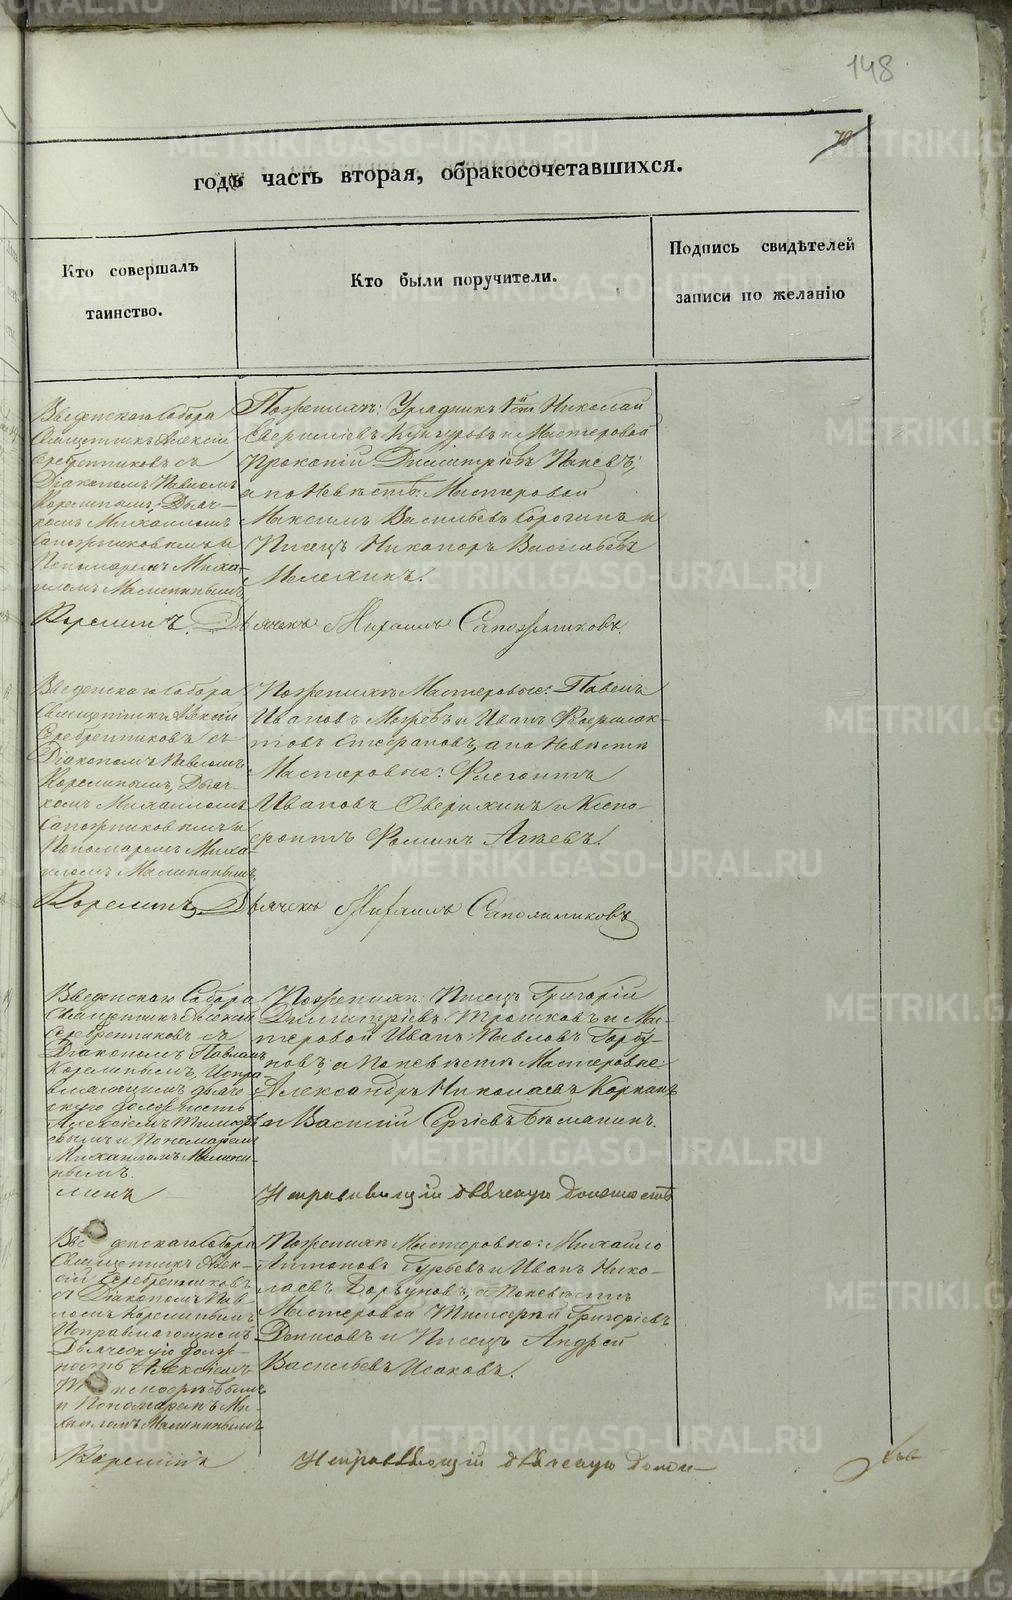 148
70
годъ часть вторая, обракосочетавшихся.
Кто совершалъ
таинство.
Кто были поручители.
Подпись свидѣтелей
записи по желанію
Введенскаго Собора
Священникъ Алексій
Серебренниковъ съ
Діакономъ Павломъ
Корелинымъ, Дьяч-
комъ Михаиломъ
Сапожниковымъ и
Пономаремъ Миха-
иломъ Малининымъ,
По женихѣ: Урядникъ Николай
Кунгуровъ и Мастеровой
Прокопій Димитріевъ
а по Невѣстѣ: Мастеровой
Максимъ Васильевъ Сорогинъ и
Писецъ Никаноръ Васильевъ
Корелинъ. Дьячекъ Михаилъ Сапожниковъ.
Введенскаго Собора
Священникъ Алексій
Серебренниковъ съ
Діакономъ Павломъ
Корелинымъ, Дьяч-
комъ Михаиломъ
Сапожниковымъ и
Пономаремъ Миха-
иломъ Малининымъ,
По женихѣ Мастеровые: Павелъ
Ивановъ и Иванъ
Стефановъ, а по Невѣстѣ
Мастеровые: Флегонтъ
Ивановъ и Ксено-
фонтъ Фоминъ Агѣевъ.
Корелинъ, Дьячекъ Михаилъ Сапожниковъ
Введенскаго Собора
Священникъ Алексій
Серебренниковъ съ
Діакономъ Павломъ
Корелинымъ, Испра-
вляющимъ дьяче-
скую должность
Алексіемъ
и Пономаремъ
Михаиломъ Малини-
нымъ.
По женихѣ: Писецъ Григорій
Димитріевъ Трошковъ и Ма-
стеровой Иванъ Павловъ Горбу-
новъ; а по невѣстѣ Мастеровые:
Александръ Николаевъ
и Василій Сергіевъ
Исправляющій дьяческую должность
Введенскаго Собора
Священникъ Алек-
сій Серебренниковъ
съ Діакономъ Пав-
ломъ Корелинымъ
Исправляющимъ
Дьяческую долж-
ность Алексіемъ
и Пономаремъ Ми-
хаиломъ Малининымъ
По женихѣ Мастеровые: Михайло
Антоновъ Гурьевъ и Иванъ Нико-
лаевъ Горбуновъ, а по невѣстѣ
Мастеровой Тимофей Григорьевъ
Денисовъ и Писецъ Андрей
Васильевъ Исаковъ.
Корелинъ Исправляющій дьяческую долж-
METRIKI.GASO-URAL.RU